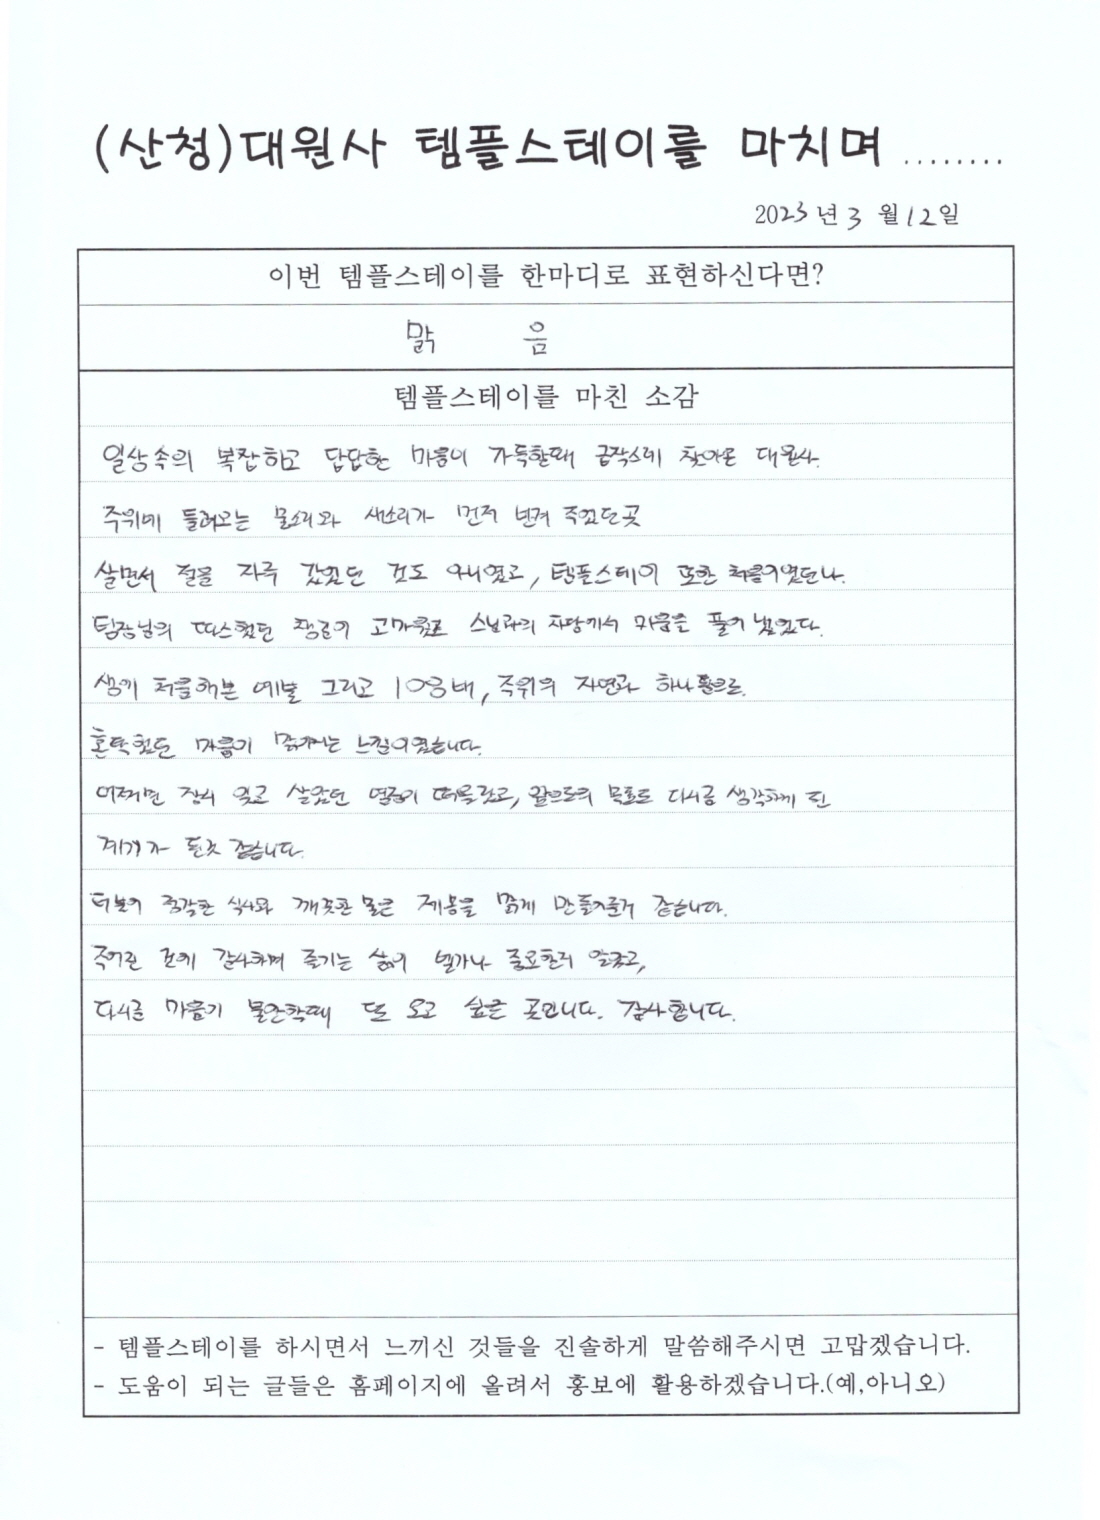 (산청)대원사 템플스테이를 마치며........
2023년 3월 12일
이번 템플스테이를 한마디로 표현하신다면?
맑 음
템플스테이를 마친 소감
일상속의 복잡하고 답답한 마음이 가득할때 급작스레 찾아온 대원사.
주위에 들려오는 물소리와 새소리가 먼저 반겨 주었던 곳
살면서 절을 자주 갔었던 것도 아니였고, 템플스테이 또한 처음이였으나.
팀장님의 따스했던 응원이 고마웠고 스님과의 차담에서 마음을 풀어 냈었다.
생에 처음해본 예불 그리고 108배, 주위의 자연과 하나됨으로.
혼탁했던 마음이 맑아지는 느낌이였습니다.
어쩌면 잠시 잊고 살았던 열정이 떠올랐고, 앞으로의 목표도 다시금 생각하게 된
계기가 된것 같습니다.
더불어 정갈한 식사와 깨끗한 물은 제몸을 맑게 만들어준거 같습니다.
주어진 것에 감사하며 즐기는 삶이 얼마나 중요한지 알았고,
다시금 마음이 불안할때 또 오고 싶은 곳입니다. 감사합니다.
- 템플스테이를 하시면서 느끼신 것들을 진솔하게 말씀해주시면 고맙겠습니다.
- 도움이 되는 글들은 홈페이지에 올려서 홍보에 활용하겠습니다.(예,아니오)